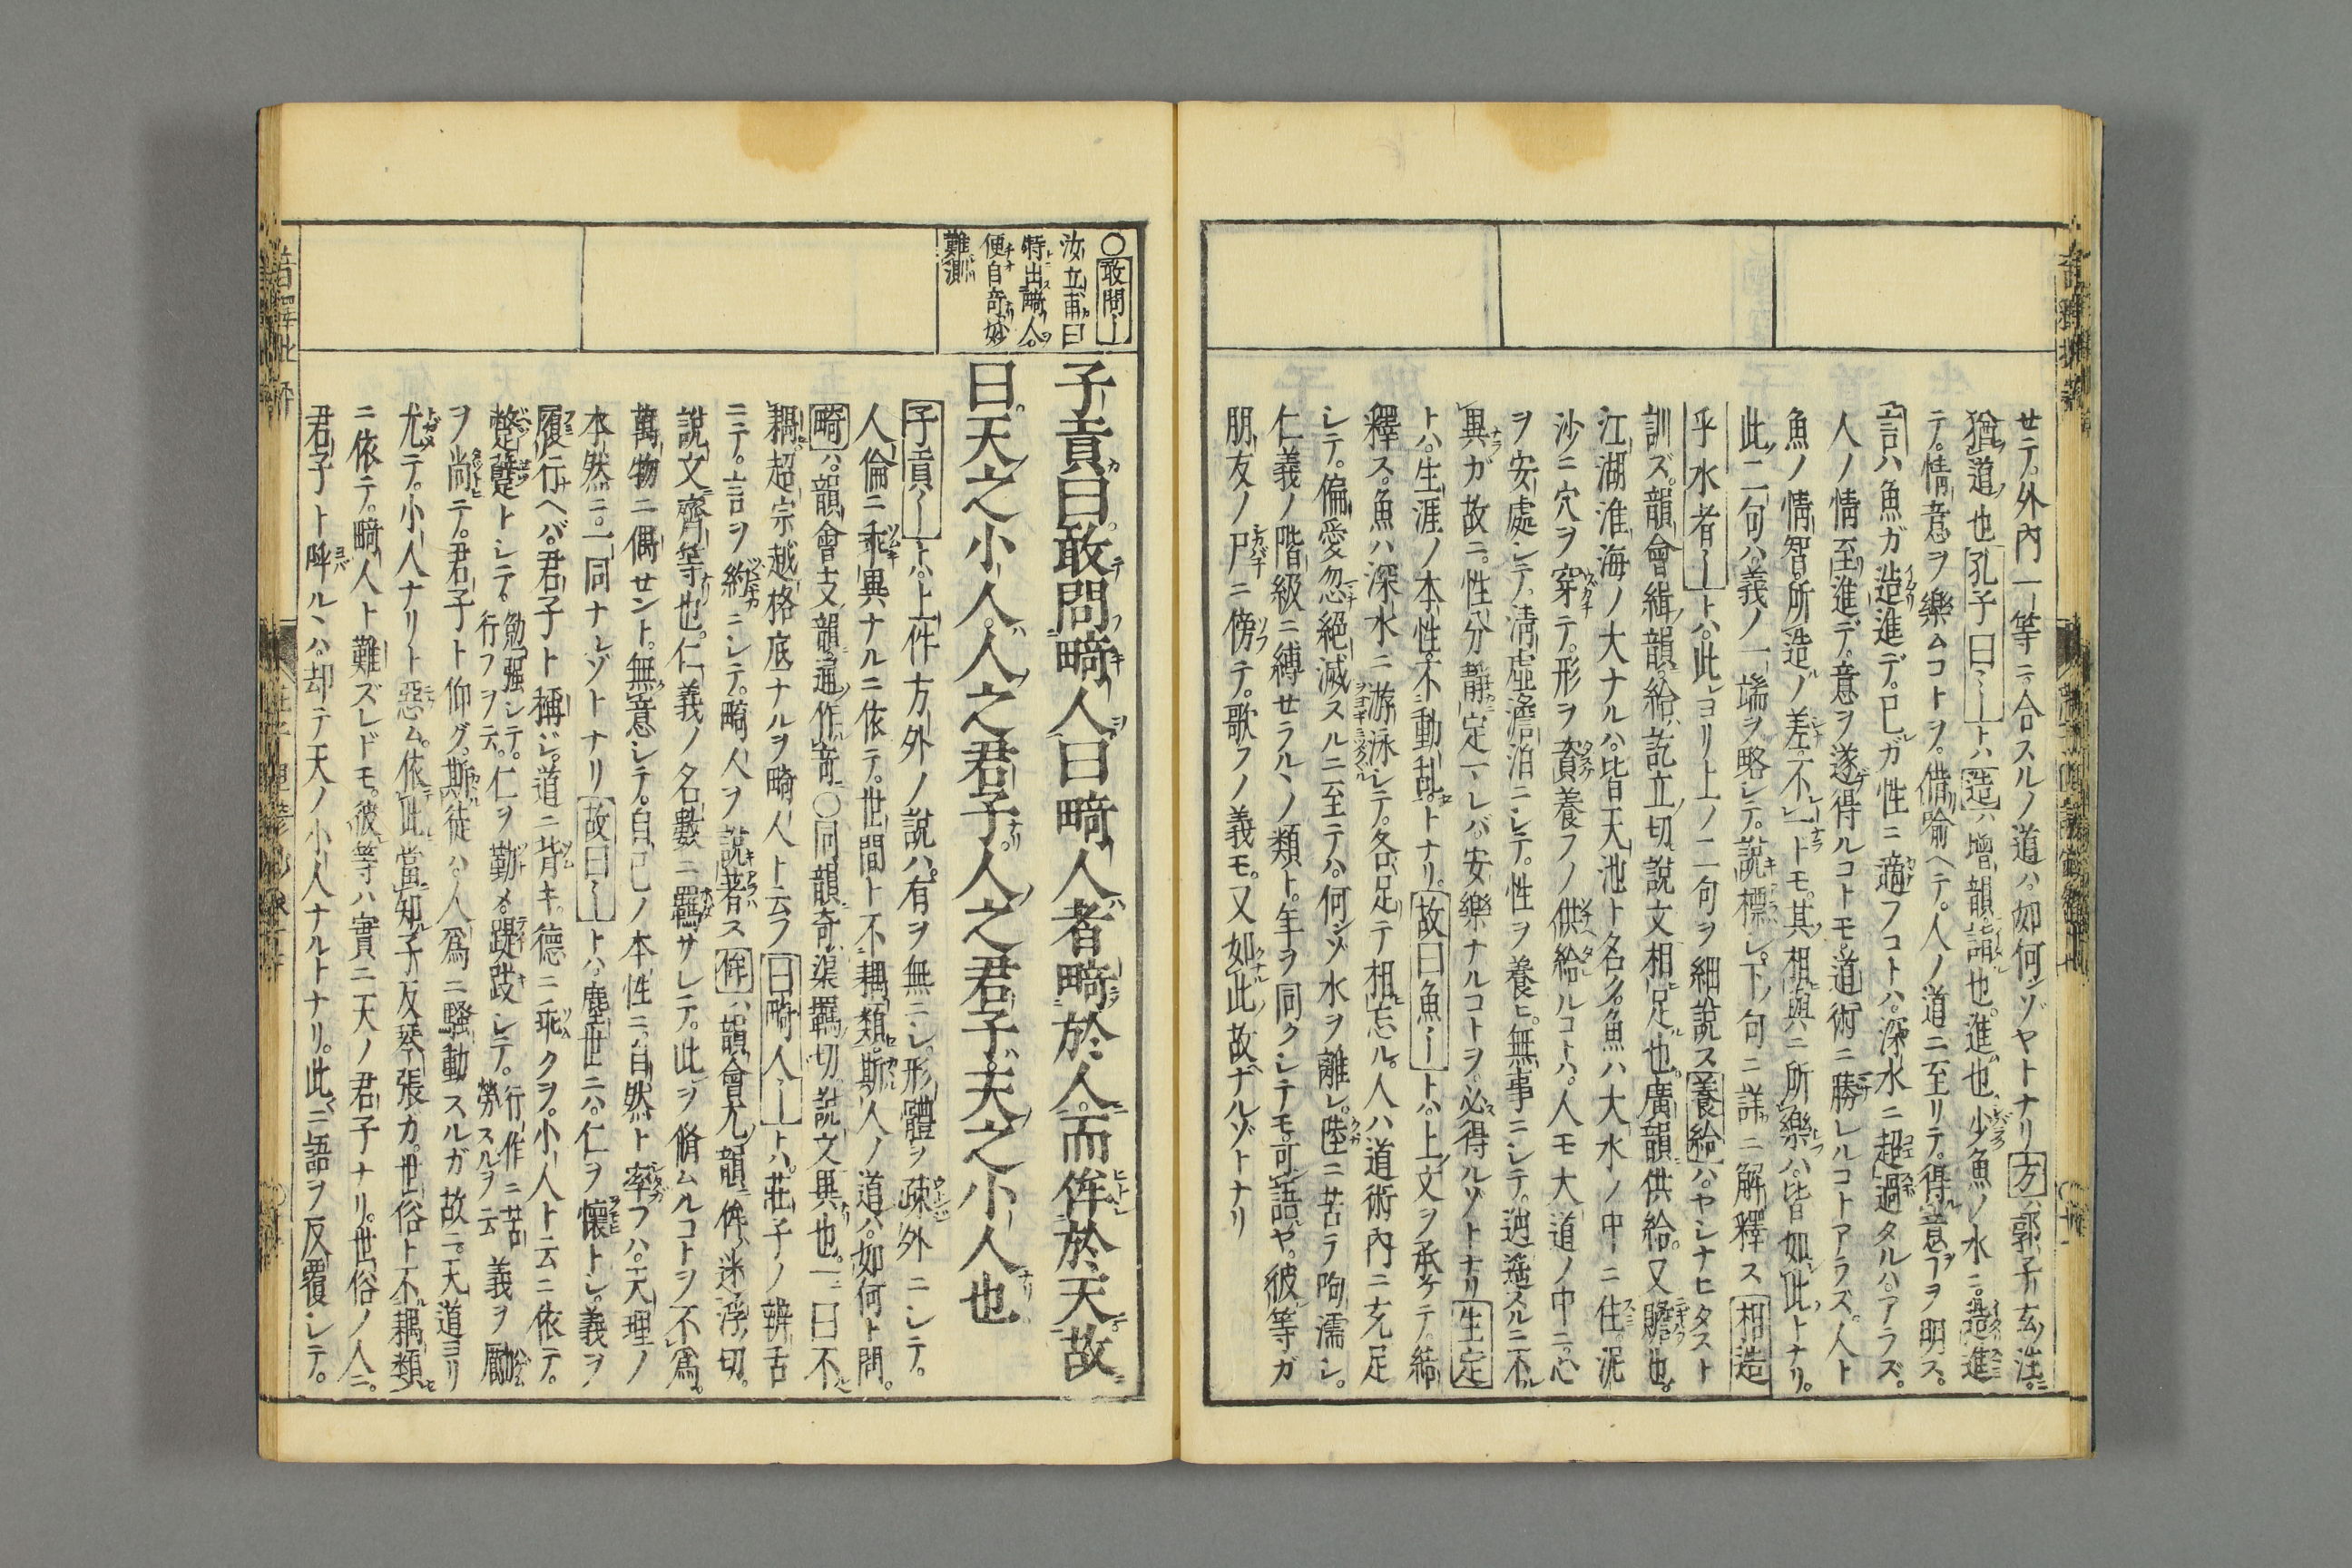 せテ。外内一等ニ合スルノ道ハ。如何ゾヤトナリ方ハ郭子玄注。
猶道也孔子曰〡トハ造ハ増韻。詣也。進也少魚ノ水ニ。造進
テ。情意ヲ樂ムコトヲ。借喩ヘテ。人ノ道ニ至リテ。得意ヿヲ明ス。
言ハ魚ガ造進デ。己ガ性ニ適フコトハ。深水ニ超過タルハアラズ。
人ノ情至進デ。意ヲ遂得ルコトモ。道術ニ勝レルコトアラズ。人ト
魚ノ情智。所造ノ差不一トモ。其相與ニ所樂ハ。皆如此トナリ。
此二句ハ。義ノ一端ヲ略シテ。説標シ。下ノ句ニ詳ニ解釋ス相造
乎水者〡トハ。此ヨリ上ノ二句ヲ細説ス養給ハ。ヤシナヒタスト
訓ズ。韻會緝韻。給訖立切。説文相足也。廣韻供給。又贍也。
江湖淮海ノ大ナルハ。皆天池ト名ク。魚ハ大水ノ中ニ住。泥
沙ニ穴ヲ穿テ。形ヲ資養フノ供給ルコトハ。人モ大道ノ中ニ。心
ヲ安處シテ。淸虛澹泊ニシテ。性ヲ養ヒ。無事ニシテ。逍遙スルニ不
異ガ故ニ。性分靜定ヽレバ。安樂ナルコトヲ。必得ルゾトナリ生定
トハ。生涯ノ本性。不動乱トナリ。故曰魚〡トハ。上文ヲ承ケテ。結
釋ス。魚ハ深水ニ游泳シテ。各足テ相忘ル。人ハ道術内ニ充足
シテ。偏愛忽絕滅スルニ至テハ。何ゾ水ヲ離レ。陸ニ苦ラ呴濡シ。
仁義ノ階級ニ縛セラルヽノ類ト。年ヲ同クシテモ。可語ヤ。彼等ガ
朋友ノ尸ニ傍テ。歌フノ義モ。又如此故ナルゾトナリ
○敢問〡
汝立甫曰
特出畸人。
便自奇妙
難測
子貢曰。敢問畸人。曰畸人者。畸於人。而侔於天。故
曰。天之小人。人之君子。人之君子。天之小人也
子貢〡トハ。上件方外ノ説ハ。有ヲ無ニシ。形體ヲ疎外ニシテ。
人倫ニ乖異ナルニ依テ。世間ト不耦類。斯人ノ道ハ。如何ト問。
畸ハ。韻會支韻。通作奇○同韻奇渠羈切。説文異也。一曰不
耦。超宗越格底ナルヲ畸人ト云フ曰畸人〡トハ。莊子ノ辨舌
ニテ。言ヲ約ニシテ。畸人ヲ説著ス侔ハ。韻會尤韻侔。迷浮切。
説文齊等也。仁義ノ名數ニ羈サレテ。此ヲ脩ムルコトヲ不爲。
萬物ニ偶せント。無意シテ。自己ノ本性ニ。自然ト率フハ。天理ノ
本然ニ。一同ナルゾトナリ故曰〡トハ。塵世ニハ。仁ヲ懷トシ。義ヲ
履行ヘバ。君子ト稱ジ。道ニ背キ。德ニ乖クヲ。小人ト云ニ依テ。
蹩躠トシテ。勉强シテ。行フヲ云。仁ヲ勤メ。踶跂シテ。行作ニ苦勞スルヲ云義ヲ勵
ヲ尚テ。君子ト仰グ。斯徒ハ。人爲ニ騷動スルガ故ニ。天道ヨリ
尤テ。小人ナリト惡ム。依此當知。子反琴張カ。世俗ト不耦類
ニ依テ。畸人ト難ズレドモ。彼等ハ實ニ天ノ君子ナリ。世俗ノ人ニ。
君子ト呼ルヽハ。却テ天ノ小人ナルトナリ。此ニ語ヲ反覆シテ。